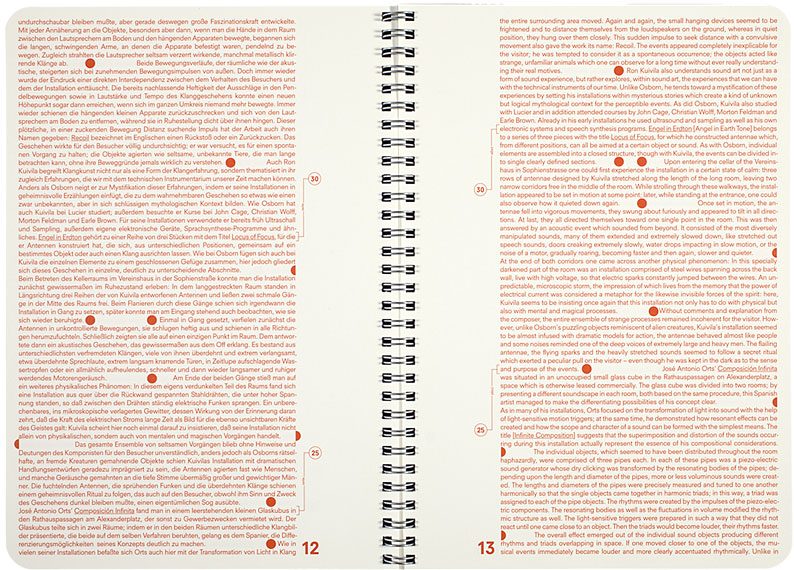 undurchschaubar bleiben mußte, aber gerade deswegen große Faszinationskraft entwickelte.
Mit jeder Annäherung an die Objekte, besonders aber dann, wenn man die Hände in dem Raum
zwischen den Lautsprechern am Boden und den hängenden Apparaten bewegte, begannen sich
die langen, schwingenden Arme, an denen die Apparate befestigt waren, pendelnd zu be-
wegen. Zugleich strahlten die Lautsprecher seltsam verzerrt wirkende, manchmal metallisch klir-
rende Klänge ab. Beide Bewegungsverläufe, der räumliche wie der akus-
tische, steigerten sich bei zunehmenden Bewegungsimpulsen von außen. Doch immer wieder
wurde der Eindruck einer direkten Interdependenz zwischen dem Verhalten des Besuchers und
dem der Installation enttäuscht. Die bereits nachlassende Heftigkeit der Ausschläge in den Pen-
delbewegungen sowie in Lautstärke und Tempo des Klanggeschehens konnte einen neuen
Höhepunkt sogar dann erreichen, wenn sich im ganzen Umkreis niemand mehr bewegte. Immer
wieder schienen die hängenden kleinen Apparate zurückzuschrecken und sich von den Laut-
sprechern am Boden zu entfernen, während sie in Ruhestellung dicht über ihnen hingen. Dieser
plötzliche, in einer zuckenden Bewegung Distanz suchende Impuls hat der Arbeit auch ihren
Namen gegeben: Recoil bezeichnet im Englischen einen Rückstoß oder ein Zurückzucken. Das
Geschehen wirkte für den Besucher völlig undurchsichtig; er war versucht, es für einen sponta-
nen Vorgang zu halten; die Objekte agierten wie seltsame, unbekannte Tiere, die man lange
betrachten kann, ohne ihre Beweggründe jemals wirklich zu verstehen. Auch Ron
Kuivila begreift Klangkunst nicht nur als eine Form der Klangerfahrung, sondern thematisiert in ihr
zugleich Erfahrungen, die wir mit dem technischen Instrumentarium unserer Zeit machen können.
Anders als Osborn neigt er zur Mystifikation dieser Erfahrungen, indem er seine Installationen in
geheimnisvolle Erzählungen einfügt, die zu dem wahrnehmbaren Geschehen so etwas wie einen
zwar unbekannten, aber in sich schlüssigen mythologischen Kontext bilden. Wie Osborn hat
auch Kuivila bei Lucier studiert; außerdem besuchte er Kurse bei John Cage, Christian Wolff,
Morton Feldman und Earle Brown. Für seine Installationen verwendete er bereits früh Ultraschall
und Sampling, außerdem eigene elektronische Geräte, Sprachsynthese-Programme und Ähn-
liches. Engel in Erdton gehört zu einer Reihe von drei Stücken mit dem Titel Locus of Focus, für die
er Antennen konstruiert hat, die sich, aus unterschiedlichen Positionen, gemeinsam auf ein
bestimmtes Objekt oder auch einen Klang ausrichten lassen. Wie bei Osborn fügen sich auch bei
Kuivila die einzelnen Elemente zu einem geschlossenen Gefüge zusammen, hier jedoch gliedert
sich dieses Geschehen in einzelne, deutlich zu unterscheidende Abschnitte.
Beim Betreten des Kellerraums im Vereinshaus in der Sophienstraße konnte man die Installation
zunächst gewissermaßen im Ruhezustand erleben: In dem langgestreckten Raum standen in
Längsrichtung drei Reihen der von Kuivila entworfenen Antennen und ließen zwei schmale Gän-
ge in der Mitte des Raums frei. Beim Flanieren durch diese Gänge schien sich irgendwann die
Installation in Gang zu setzen, später konnte man am Eingang stehend auch beobachten, wie sie
sich wieder beruhigte. Einmal in Gang gesetzt, verfielen zunächst die
Antennen in unkontrollierte Bewegungen, sie schlugen heftig aus und schienen in alle Richtun-
gen herumzufuchteln. Schließlich zeigten sie alle auf einen einzigen Punkt im Raum. Dem antwor-
tete dann ein akustisches Geschehen, das gewissermaßen aus dem Off erklang. Es bestand aus
unterschiedlichsten verfremdeten Klängen, viele von ihnen überdehnt und extrem verlangsamt,
etwa überdehnte Sprechlaute, extrem langsam knarrende Türen, in Zeitlupe aufschlagende Was-
sertropfen oder ein allmählich aufheulendes, schneller und dann wieder langsamer und ruhiger
werdendes Motorengeräusch. Am Ende der beiden Gänge stieß man auf
ein weiteres physikalisches Phänomen: In diesem eigens verdunkelten Teil des Raums fand sich
eine Installation aus quer über die Rückwand gespannten Stahldrähten, die unter hoher Span-
nung standen, so daß zwischen den Drähten ständig elektrische Funken sprangen. Ein unbere-
chenbares, ins mikroskopische verlagertes Gewitter, dessen Wirkung von der Erinnerung daran
zehrt, daß die Kraft des elektrischen Stroms lange Zeit als Bild für die ebenso unsichtbaren Kräfte
des Geistes galt: Kuivila scheint hier noch einmal darauf zu insistieren, daß seine Installation nicht
allein von physikalischen, sondern auch von mentalen und magischen Vorgängen handelt.
Das gesamte Ensemble von seltsamen Vorgängen blieb ohne Hinweise und
Deutungen des Komponisten für den Besucher unverständlich; anders jedoch als Osborns rätsel-
hafte, an fremde Kreaturen gemahnende Objekte schien Kuivilas Installation mit dramatischen
Handlungsentwürfen geradezu imprägniert zu sein, die Antennen agierten fast wie Menschen,
und manche Geräusche gemahnten an die tiefe Stimme übermäßig großer und gewichtiger Män-
ner. Die fuchtelnden Antennen, die sprühenden Funken und die überdehnten Klänge schienen
einem geheimnisvollen Ritual zu folgen, das auch auf den Besucher, obwohl ihm Sinn und Zweck
des Geschehens dunkel bleiben mußte, einen eigentümlichen Sog ausübte.
José Antonio Orts' Composición Infinita fand man in einem leerstehenden kleinen Glaskubus in
den Rathauspassagen am Alexanderplatz, der sonst zu Gewerbezwecken vermietet wird. Der
Glaskubus teilte sich in zwei Räume; indem er in den beiden Räumen unterschiedliche Klangbil-
der präsentierte, die beide auf dem selben Verfahren beruhten, gelang es dem Spanier, die Diffe-
renzierungsmöglichkeiten seines Konzepts deutlich zu machen. Wie in
vielen seiner Installationen befaßte sich Orts auch hier mit der Transformation von Licht in Klang
30
25
12
the entire surrounding area moved. Again and again, the small hanging devices seemed to be
frightened and to distance themselves from the loudspeakers on the ground, whereas in quiet
position, they hung over them closely. This sudden impulse to seek distance with a convulsive
movement also gave the work its name: Recoil. The events appeared completely inexplicable for
the visitor; he was tempted to consider it as a spontaneous occurrence; the objects acted like
strange, unfamiliar animals which one can observe for a long time without ever really understand-
ing their real motives. Ron Kuivila also understands sound art not just as a
form of sound experience, but rather explores, within sound art, the experiences that we can have
with the technical instruments of our time. Unlike Osborn, he tends toward a mystification of these
experiences by setting his installations within mysterious stories which create a kind of unknown
but logical mythological context for the perceptible events. As did Osborn, Kuivila also studied
with Lucier and in addition attended courses by John Cage, Christian Wolff, Morton Feldman and
Earle Brown. Already in his early installations he used ultrasound and sampling as well as his own
electronic systems and speech synthesis programs. Engel in Erdton [Angel in Earth Tone] belongs
to a series of three pieces with the title Locus of Focus, for which he constructed antennae which,
from different positions, can all be aimed at a certain object or sound. As with Osborn, individual
elements are assembled into a closed structure, though with Kuivila, the events can be divided in-
to single clearly defined sections. Upon entering the cellar of the Vereins-
haus in Sophienstrasse one could first experience the installation in a certain state of calm: three
rows of antennae designed by Kuivila stretched along the length of the long room, leaving two
narrow corridors free in the middle of the room. While strolling through these walkways, the instal-
lation appeared to be set in motion at some point: later, while standing at the entrance, one could
also observe how it quieted down again. Once set in motion, the an-
tennae fell into vigorous movements, they swung about furiously and appeared to tilt in all direc-
tions. At last, they all directed themselves toward one single point in the room. This was then
answered by an acoustic event which sounded from beyond. It consisted of the most diversely
manipulated sounds, many of them extended and extremely slowed down, like stretched out
speech sounds, doors creaking extremely slowly, water drops impacting in slow motion, or the
noise of a motor, gradually roaring, becoming faster and then again, slower and quieter.
At the end of both corridors one came across another physical phenomenon: In this specially
darkened part of the room was an installation comprised of steel wires spanning across the back
wall, live with high voltage, so that electric sparks constantly jumped between the wires. An un-
predictable, microscopic storm, the impression of which lives from the memory that the power of
electrical current was considered a metaphor for the likewise invisible forces of the spirit: here,
Kuivila seems to be insisting once again that this installation not only has to do with physical but
also with mental and magical processes. Without comments and explanation
from the composer, the entire ensemble of strange processes remained incoherent for the visitor. How-
ever, unlike Osborn's puzzling objects reminiscent of alien creatures, Kuivila's installation seemed
to be almost infused with dramatic models for action, the antennae behaved almost like people
and some noises reminded one of the deep voices of extremely large and heavy men. The flailing
antennae, the flying sparks and the heavily stretched sounds seemed to follow a secret ritual
which exerted a peculiar pull on the visitor – even though he was kept in the dark as to the sense
and purpose of the events. José Antonio Orts' Composición Infinita
was situated in an unoccupied small glass cube in the Rathauspassagen on Alexanderplatz, a
space which is otherwise leased commercially. The glass cube was divided into two rooms; by
presenting a different soundscape in each room, both based on the same procedure, this Spanish
artist managed to make the differentiating possibilities of his concept clear.
As in many of his installations, Orts focused on the transformation of light into sound with the help
of light-sensitive motion triggers; at the same time, he demonstrated how resonant effects can be
created and how the scope and character of a sound can be formed with the simplest means. The
title [Infinite Composition] suggests that the superimposition and distortion of the sounds occur-
ring during this installation actually represent the essence of his compositional considerations.
The individual objects, which seemed to have been distributed throughout the room
haphazardly, were comprised of three pipes each. In each of these pipes was a piezo-electric
sound generator whose dry clicking was transformed by the resonating bodies of the pipes; de-
pending upon the length and diameter of the pipes, more or less voluminous sounds were creat-
ed. The lengths and diameters of the pipes were precisely measured and tuned to one another
harmonically so that the single objects came together in harmonic triads; in this way, a triad was
assigned to each of the pipe objects. The rhythms were created by the impulses of the piezo-elec-
tric components. The resonating bodies as well as the fluctuations in volume modified the rhyth-
mic structure as well. The light-sensitive triggers were prepared in such a way that they did not
react until one came close to an object. Then the triads would become louder, their rhythms faster.
The overall effect emerged out of the individual sound objects producing different
rhythms and triads overlapping in space. If one moved closer to one of the objects, the mu-
sical events immediately became louder and more clearly accentuated rhythmically. Unlike in
30
25
13